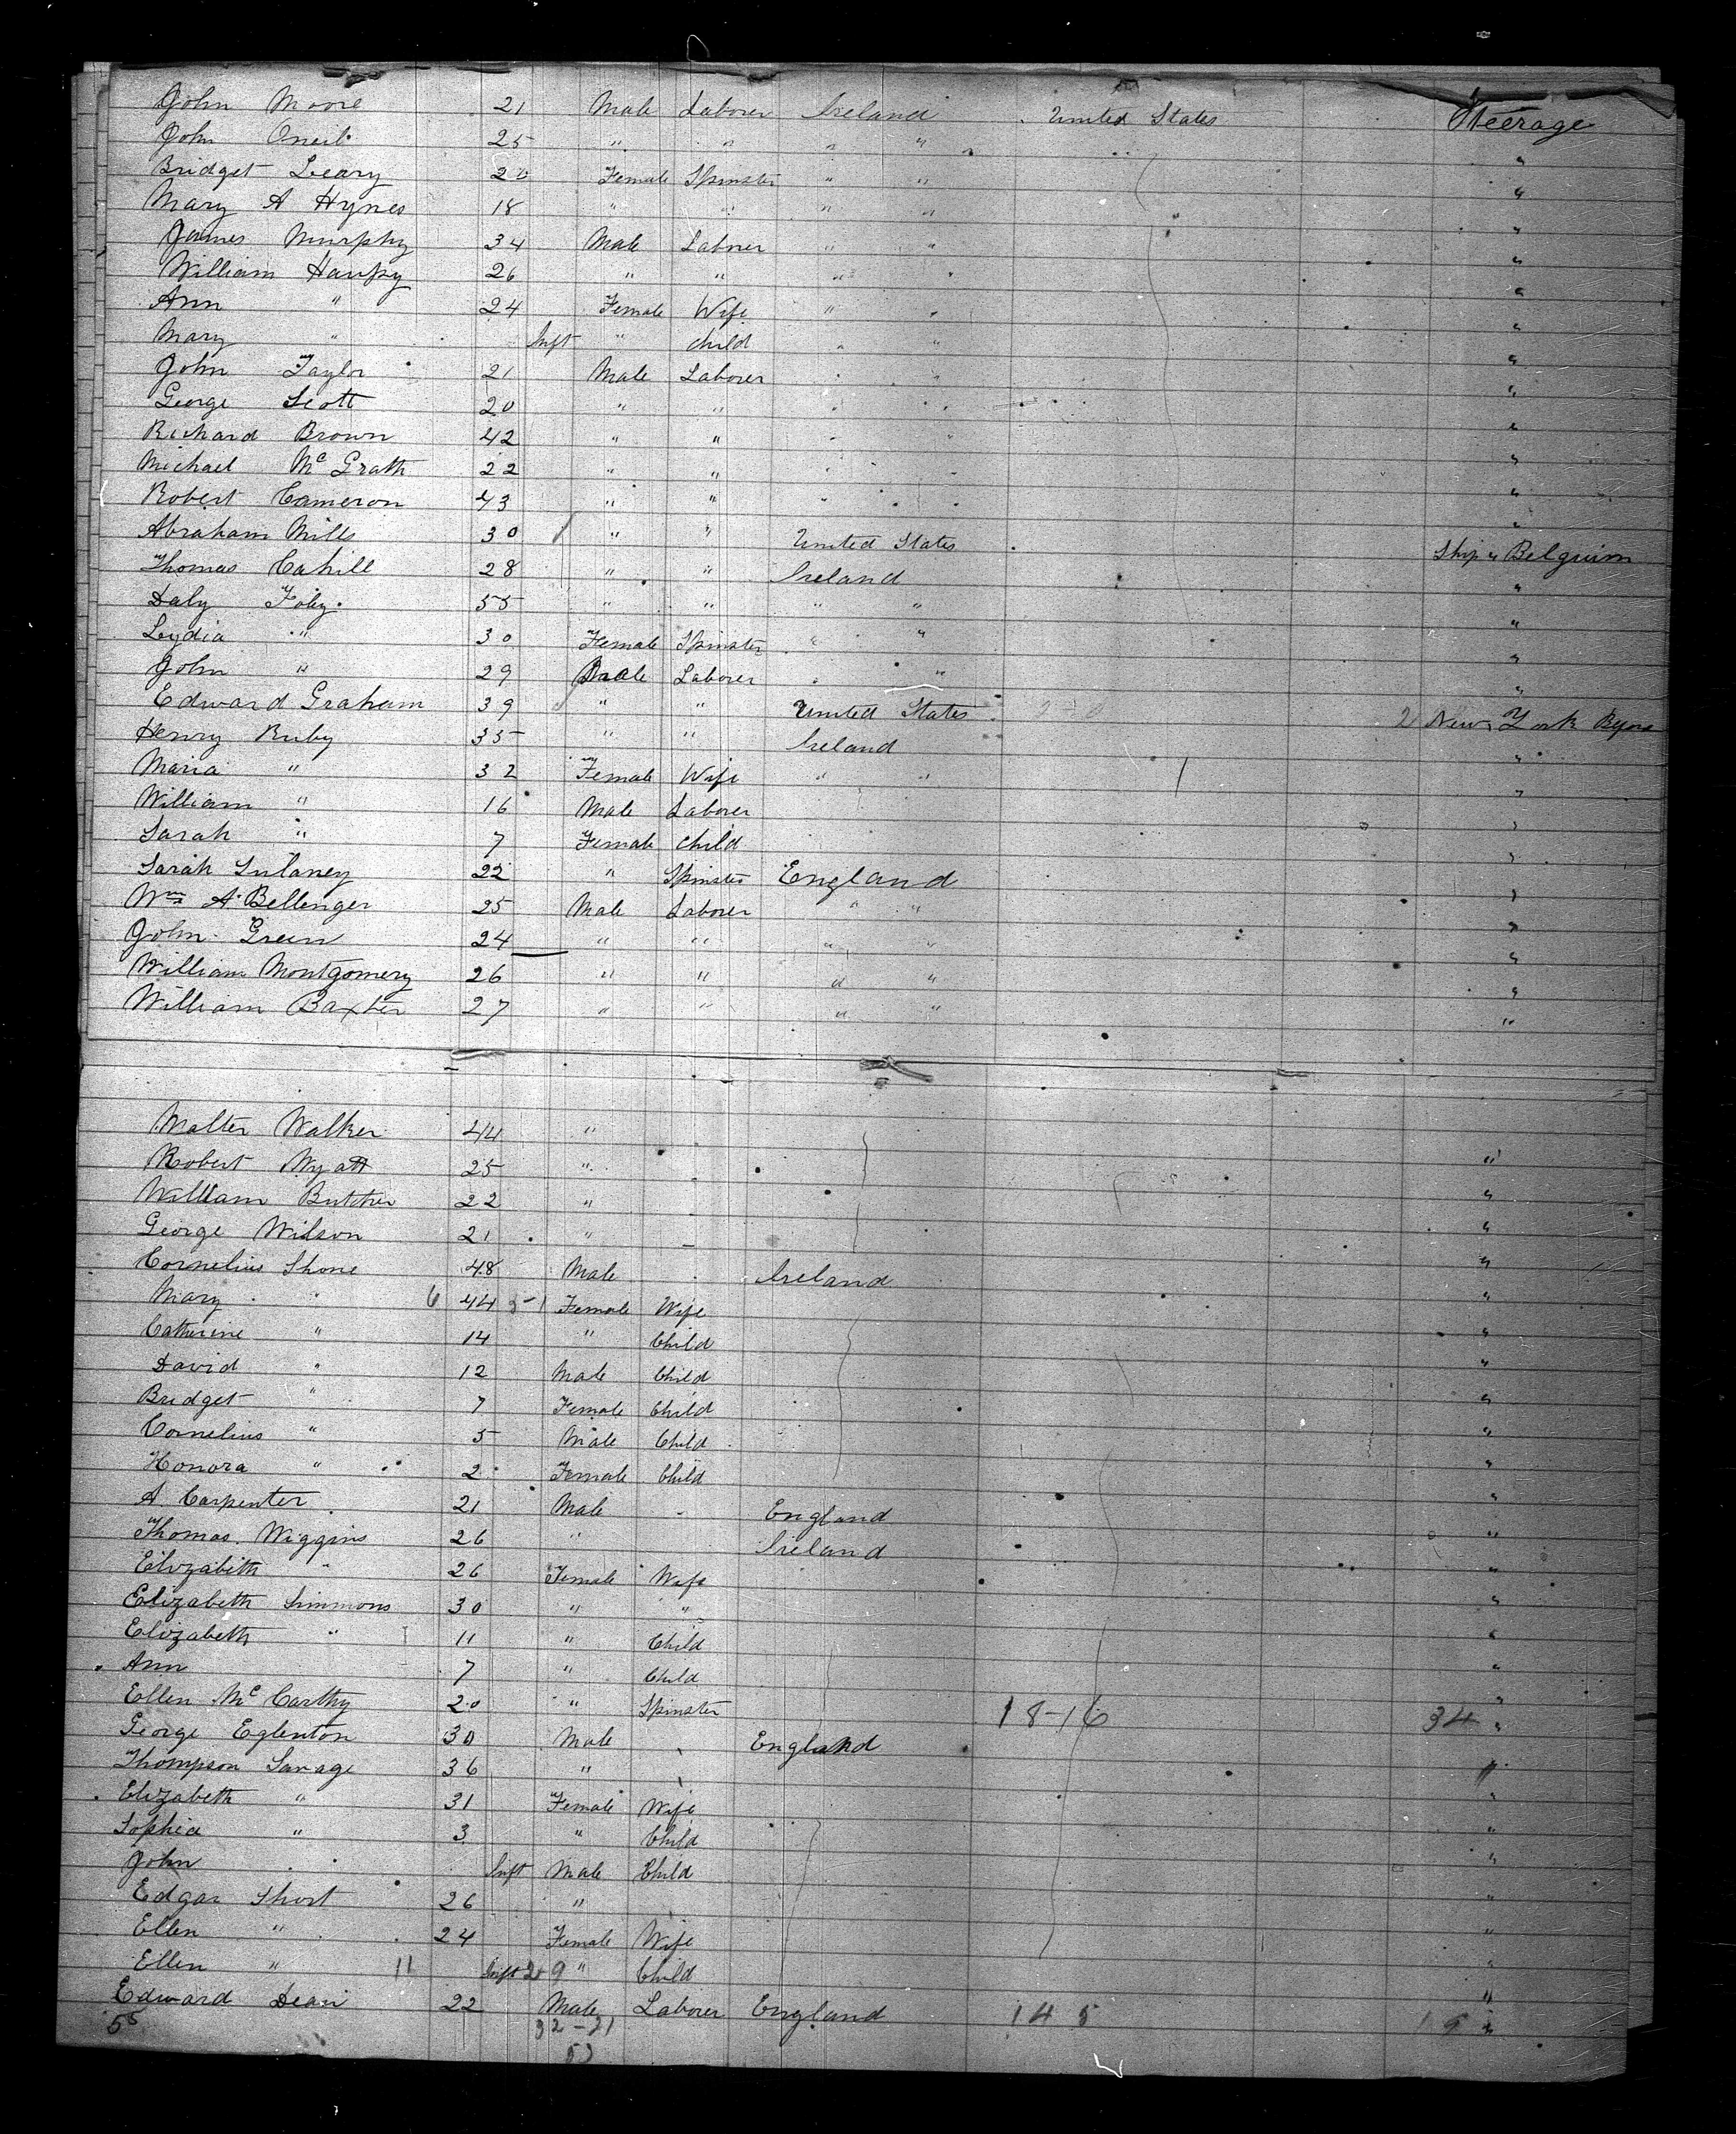 John Moore 21 Male Laborer Ireland United States Steerage
John Oneil 25 " " " " "
Bridget Leary 20 Female Spinster " " "
Mary A Hynes 18 " " " " "
James Murphy 34 Male Laborer " " "
William 26 " " " " "
Ann " 24 Female Wife " " "
Mary " Inft " child " " "
John Taylor 21 Male Laborer " " "
George Scott 20 " " " " "
Richard Brown 42 " " " " "
Michael McGrath 22 " " " " "
Robert Cameron 43 " " " " "
Abraham Mills 30 " " United States Ship " Belguim
Thomas Cahill 28 " " Ireland "
Daly Foley 55 " " " " "
Lydia " 30 Female Spinster " " "
John " 29 Male Laborer " " "
Edward Graham 39 " " United States 2 New York
Henry Ruby 35 " " Ireland "
Maria " 32 Female Wife " " "
William " 16 Male Laborer "
Sarah " 7 Female child "
Sarah Sulaney 22 " Spinster England "
Wm A. Bellenger 25 Male Laborer " " "
John Green 24 " " " " "
William Montgomery 26 " " " " "
William Baxter 27 " " " " "
Walter Walker 44 "
Robert Wyatt 25 " "
William Butcher 22 " "
George Wilson 21 " "
Cornelius Shone 48 Male Ireland "
Mary " 6 44 5-1 Female Wife "
Catherine " 14 " Child "
David " 12 Male Child "
Bridget " 7 Female Child "
Cornelius " 5 Male Child "
Honora " 2 Female Child "
A. Carpenter 21 Male England "
Thomas Wiggins 26 " Ireland "
Elizabeth " 26 Female Wife "
Elizabeth Simmons 30 " " "
Elizabeth " 11 " Child "
Ann 7 " Child "
Ellen McCarthy 20 " Spinster 18-16 34 "
George Eglenton 30 Male England
Thompson Savage 36 " "
Elizabeth " 31 Female Wife "
Sophia " 3 " Child "
John " Inft Male Child "
Edgar Short 26 " "
Ellen " 24 Female Wife "
Ellen " 11 Inft 29 " Child "
Edward Dean 22 Male Laborer England 14 5 "
55 32-21